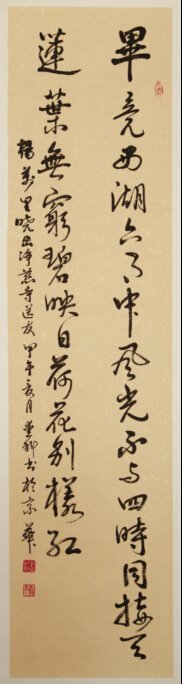 畢竟西湖六月中風光不与四時同接天
蓮葉無窮碧映日荷花别樣紅
楊萬里曉出淨慈寺送友甲午亥月書於京華